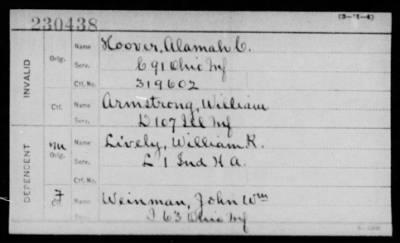 230438
(3-14)
INVALID
Orig.
Name Hoover, Alamah C.
Serv. C 91 Ohio Inf
Ctf. No. 319602
Ctf.
Name Armstrong, William
Serv. D 107 Ill Inf
DEPENDENT
m
Orig.
Name Lively, William K.
Serv. L 1 Ind H A.
Ctf. No.
F
Ctf.
Name Weinman, John Wm
Serv. I 63 Ohio Inf